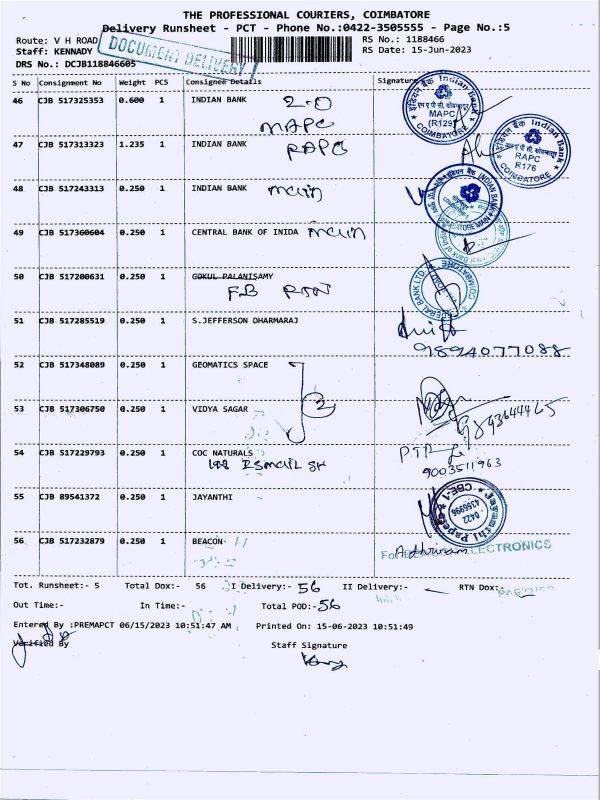 THE PROFESSIONAL COURIERS, COIMBATORE
Delivery Runsheet - PCT - Phone No.:0422-3505555 - Page No.:5
Route: V H ROAD
RS No.: 1188466
Staff: KENNADY
RS Date: 15-Jun-2023
DOCUMENT DELIVERY
DRS No.: DCJB118846605
S No Consignment No Weight PCS Consignee Details Signature
46 CJB 517325353 0.600 1 INDIAN BANK 2.0
MAPC
Indian Bank MAPC (R129) COIMBATORE
47 CJB 517313323 1.235 1 INDIAN BANK RAPC
Indian Bank RAPC R176 COIMBATORE
48 CJB 517243313 0.250 1 INDIAN BANK main
INDIAN BANK
49 CJB 517360604 0.250 1 CENTRAL BANK OF INIDA main
50 CJB 517200631 0.250 1 GOKUL PALANISAMY
FB
COIMBATORE
51 CJB 517285519 0.250 1 S.JEFFERSON DHARMARAJ
9894077088
52 CJB 517348089 0.250 1 GEOMATICS SPACE
2
53 CJB 517306750 0.250 1 VIDYA SAGAR
54 CJB 517229793 0.250 1 COC NATURALS
9003511963
55 CJB 89541372 0.250 1 JAYANTHI
Jayanthi Paper 0422 4356996 CBE-1
56 CJB 517232879 0.250 1 BEACON
For ELECTRONICS
Tot. Runsheet:- 5 Total Dox:- 56 I Delivery:- 56 II Delivery:- RTN Dox:-
Out Time:- In Time:- Total POD:- 56
Entered By :PREMAPCT 06/15/2023 10:51:47 AM Printed On: 15-06-2023 10:51:49
Verified By Staff Signature